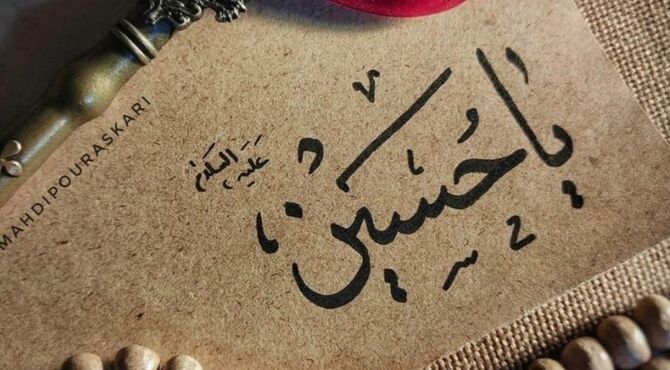 یا حُسَین
علیه السلام
MAHDIPOURASKARI